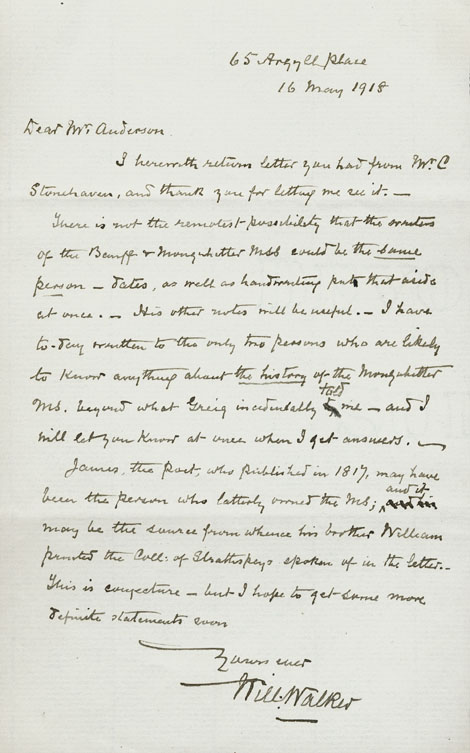 65 Argyll Place
16 May 1918
Dear Mr. Anderson.
I herewith return letter you had from Mr. C
Stonehaven, and thank you for letting me see it. —
There is not the remotest possibility that the writers
of the Banff & Monquhitter MSS could be the same
person — dates, as well as handwriting put that aside
at once. — His other notes will be useful. — I have
to-day written to the only two persons who are likely
to know anything about the history of the Monquhitter
MS. beyond what Greig incidentally told me — and I
will let you know at once when I get answers. —
James, the poet, who published in 1817, may have
been the person who latterly owned the MS; and it
may be the source from whence his brother William
printed the Coll: of Strathspeys spoken of in the letter. —
This is conjecture — but I hope to get some more
definite statements soon
Yours ever
Will. Walker